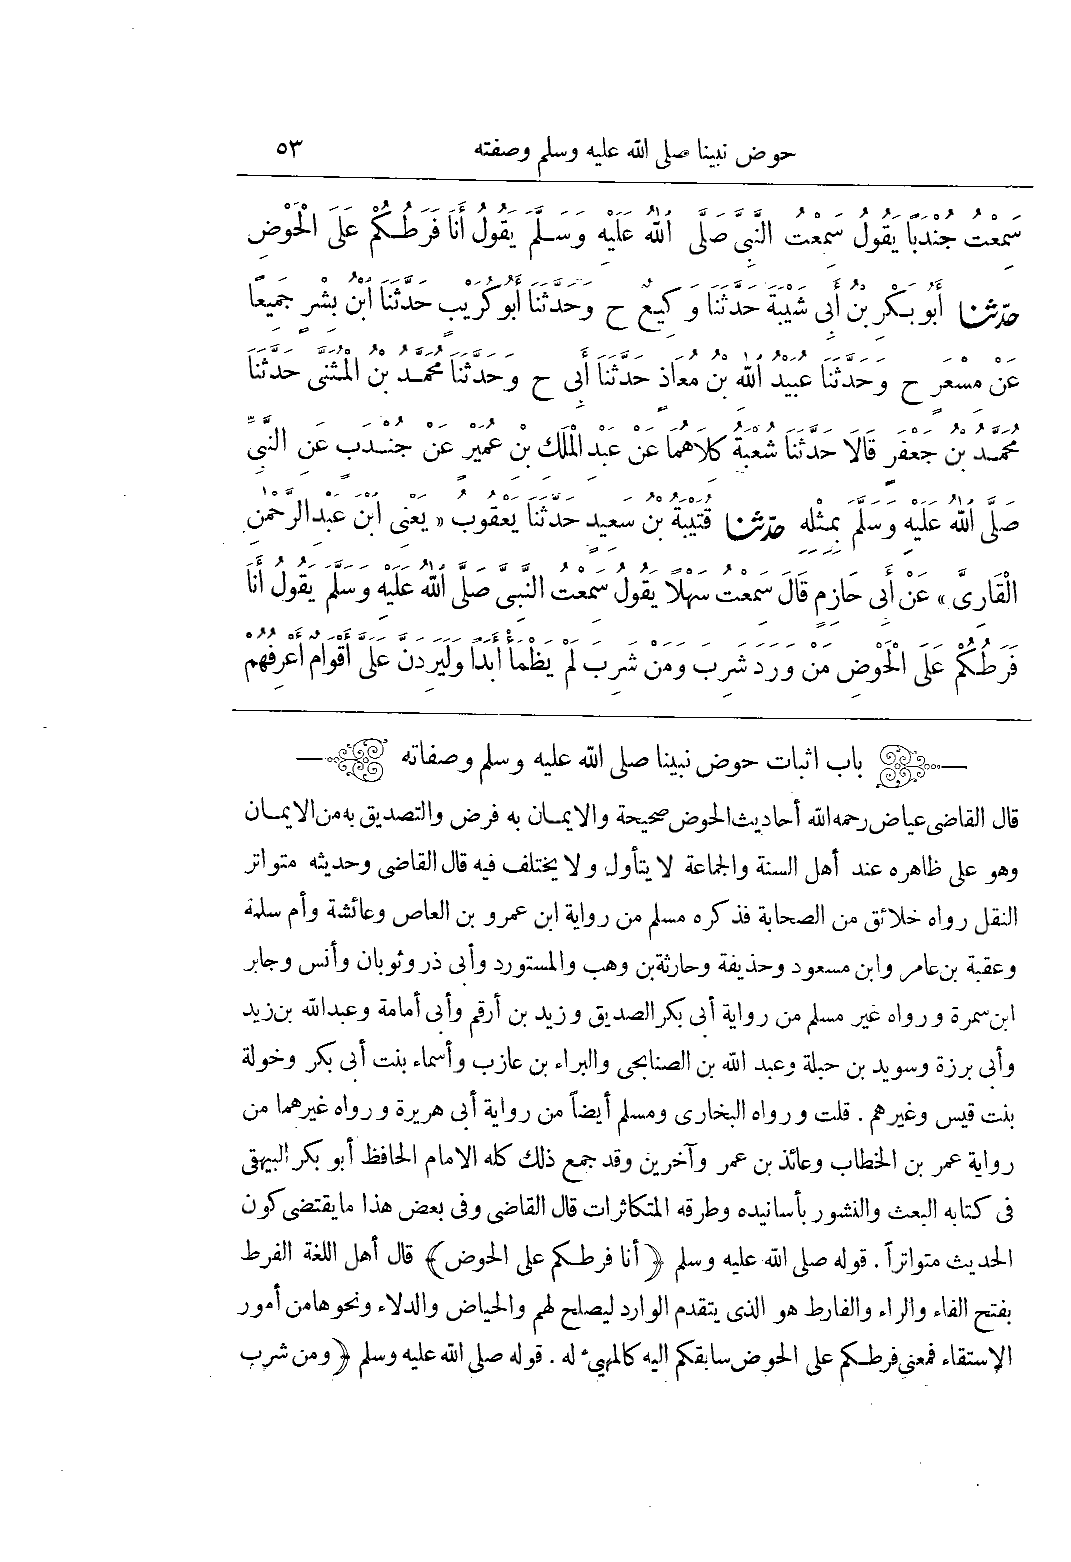 حوض نبينا صلى الله عليه وسلم وصفته ٥٣
سَمِعْتُ جُنْدَبًا يَقُولُ سَمِعْتُ النَّبِيَّ صَلَّى اللهُ عَلَيْهِ وَسَلَّمَ يَقُولُ أَنَا فَرَطُكُمْ عَلَى الْحَوْضِ
حدّثنا أَبُو بَكْرِ بْنُ أَبِي شَيْبَةَ حَدَّثَنَا وَكِيعٌ ح وَحَدَّثَنَا أَبُو كُرَيْبٍ حَدَّثَنَا ابْنُ بِشْرٍ جَمِيعًا
عَنْ مِسْعَرٍ ح وَحَدَّثَنَا عُبَيْدُ اللهِ بْنُ مُعَاذٍ حَدَّثَنَا أَبِي ح وَحَدَّثَنَا مُحَمَّدُ بْنُ الْمُثَنَّى حَدَّثَنَا
مُحَمَّدُ بْنُ جَعْفَرٍ قَالَا حَدَّثَنَا شُعْبَةُ كِلَاهُمَا عَنْ عَبْدِ الْمَلِكِ بْنِ عُمَيْرٍ عَنْ جُنْدَبٍ عَنِ النَّبِيِّ
صَلَّى اللهُ عَلَيْهِ وَسَلَّمَ بِمِثْلِهِ حدّثنا قُتَيْبَةُ بْنُ سَعِيدٍ حَدَّثَنَا يَعْقُوبُ «يَعْنِى ابْنَ عَبْدِ الرَّحْمٰنِ
الْقَارِىَّ» عَنْ أَبِي حَازِمٍ قَالَ سَمِعْتُ سَهْلًا يَقُولُ سَمِعْتُ النَّبِيَّ صَلَّى اللهُ عَلَيْهِ وَسَلَّمَ يَقُولُ أَنَا
فَرَطُكُمْ عَلَى الْحَوْضِ مَنْ وَرَدَ شَرِبَ وَمَنْ شَرِبَ لَمْ يَظْمَأْ أَبَدًا وَلَيَرِدَنَّ عَلَىَّ أَقْوَامٌ أَعْرِفُهُمْ
باب اثبات حوض نبينا صلى الله عليه وسلم وصفاته
قال القاضى عياض رحمه الله أحاديث الحوض صحيحة والايمان به فرض والتصديق به من الايمان
وهو على ظاهره عند أهل السنة والجماعة لا يتأول ولا يختلف فيه قال القاضى وحديثه متواتر
النقل رواه خلائق من الصحابة فذكره مسلم من رواية ابن عمرو بن العاص وعائشة وأم سلمة
وعقبة بن عامر وابن مسعود وحذيفة وحارثة بن وهب والمستورد وأبى ذر وثوبان وأنس وجابر
ابن سمرة ورواه غير مسلم من رواية أبى بكر الصديق وزيد بن أرقم وأبى أمامة وعبد الله بن زيد
وأبى برزة وسويد بن حبلة وعبد الله بن الصنابحى والبراء بن عازب وأسماء بنت أبى بكر وخولة
بنت قيس وغيرهم . قلت ورواه البخارى ومسلم أيضاً من رواية أبى هريرة ورواه غيرهما من
رواية عمر بن الخطاب وعائذ بن عمر وآخرين وقد جمع ذلك كله الامام الحافظ أبو بكر البيهقى
فى كتابه البعث والنشور بأسانيده وطرقه المتكاثرات قال القاضى وفى بعض هذا ما يقتضى كون
الحديث متواتراً . قوله صلى الله عليه وسلم ﴿أنا فرطكم على الحوض﴾ قال أهل اللغة الفرط
بفتح الفاء والراء والفارط هو الذى يتقدم الوارد ليصلح لهم والحياض والدلاء ونحوها من أمور
الاستقاء فمعنى فرطكم على الحوض سابقكم اليه كالمهيء له . قوله صلى الله عليه وسلم ﴿ومن شرب